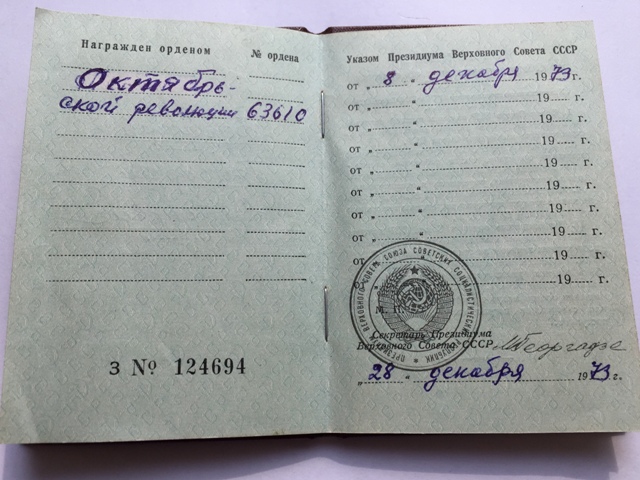 Награжден орденом
№ ордена
Октябрь-
ской революции 63610
З № 124694
Указом Президиума Верховного Совета СССР
от „ 8 “ декабря 1973 г.
от „ “ 19 г.
от „ “ 19 г.
от „ “ 19 г.
от „ “ 19 г.
от „ “ 19 г.
от „ “ 19 г.
от „ “ 19 г.
от „ “ 19 г.
от „ “ 19 г.
ПРЕЗИДИУМ ВЕРХОВНОГО СОВЕТА СОЮЗА СОВЕТСКИХ СОЦИАЛИСТИЧЕСКИХ РЕСПУБЛИК
М. П.
Секретарь Президиума
Верховного Совета СССР МГеоргадзе
„ 28 “ декабря 1973 г.